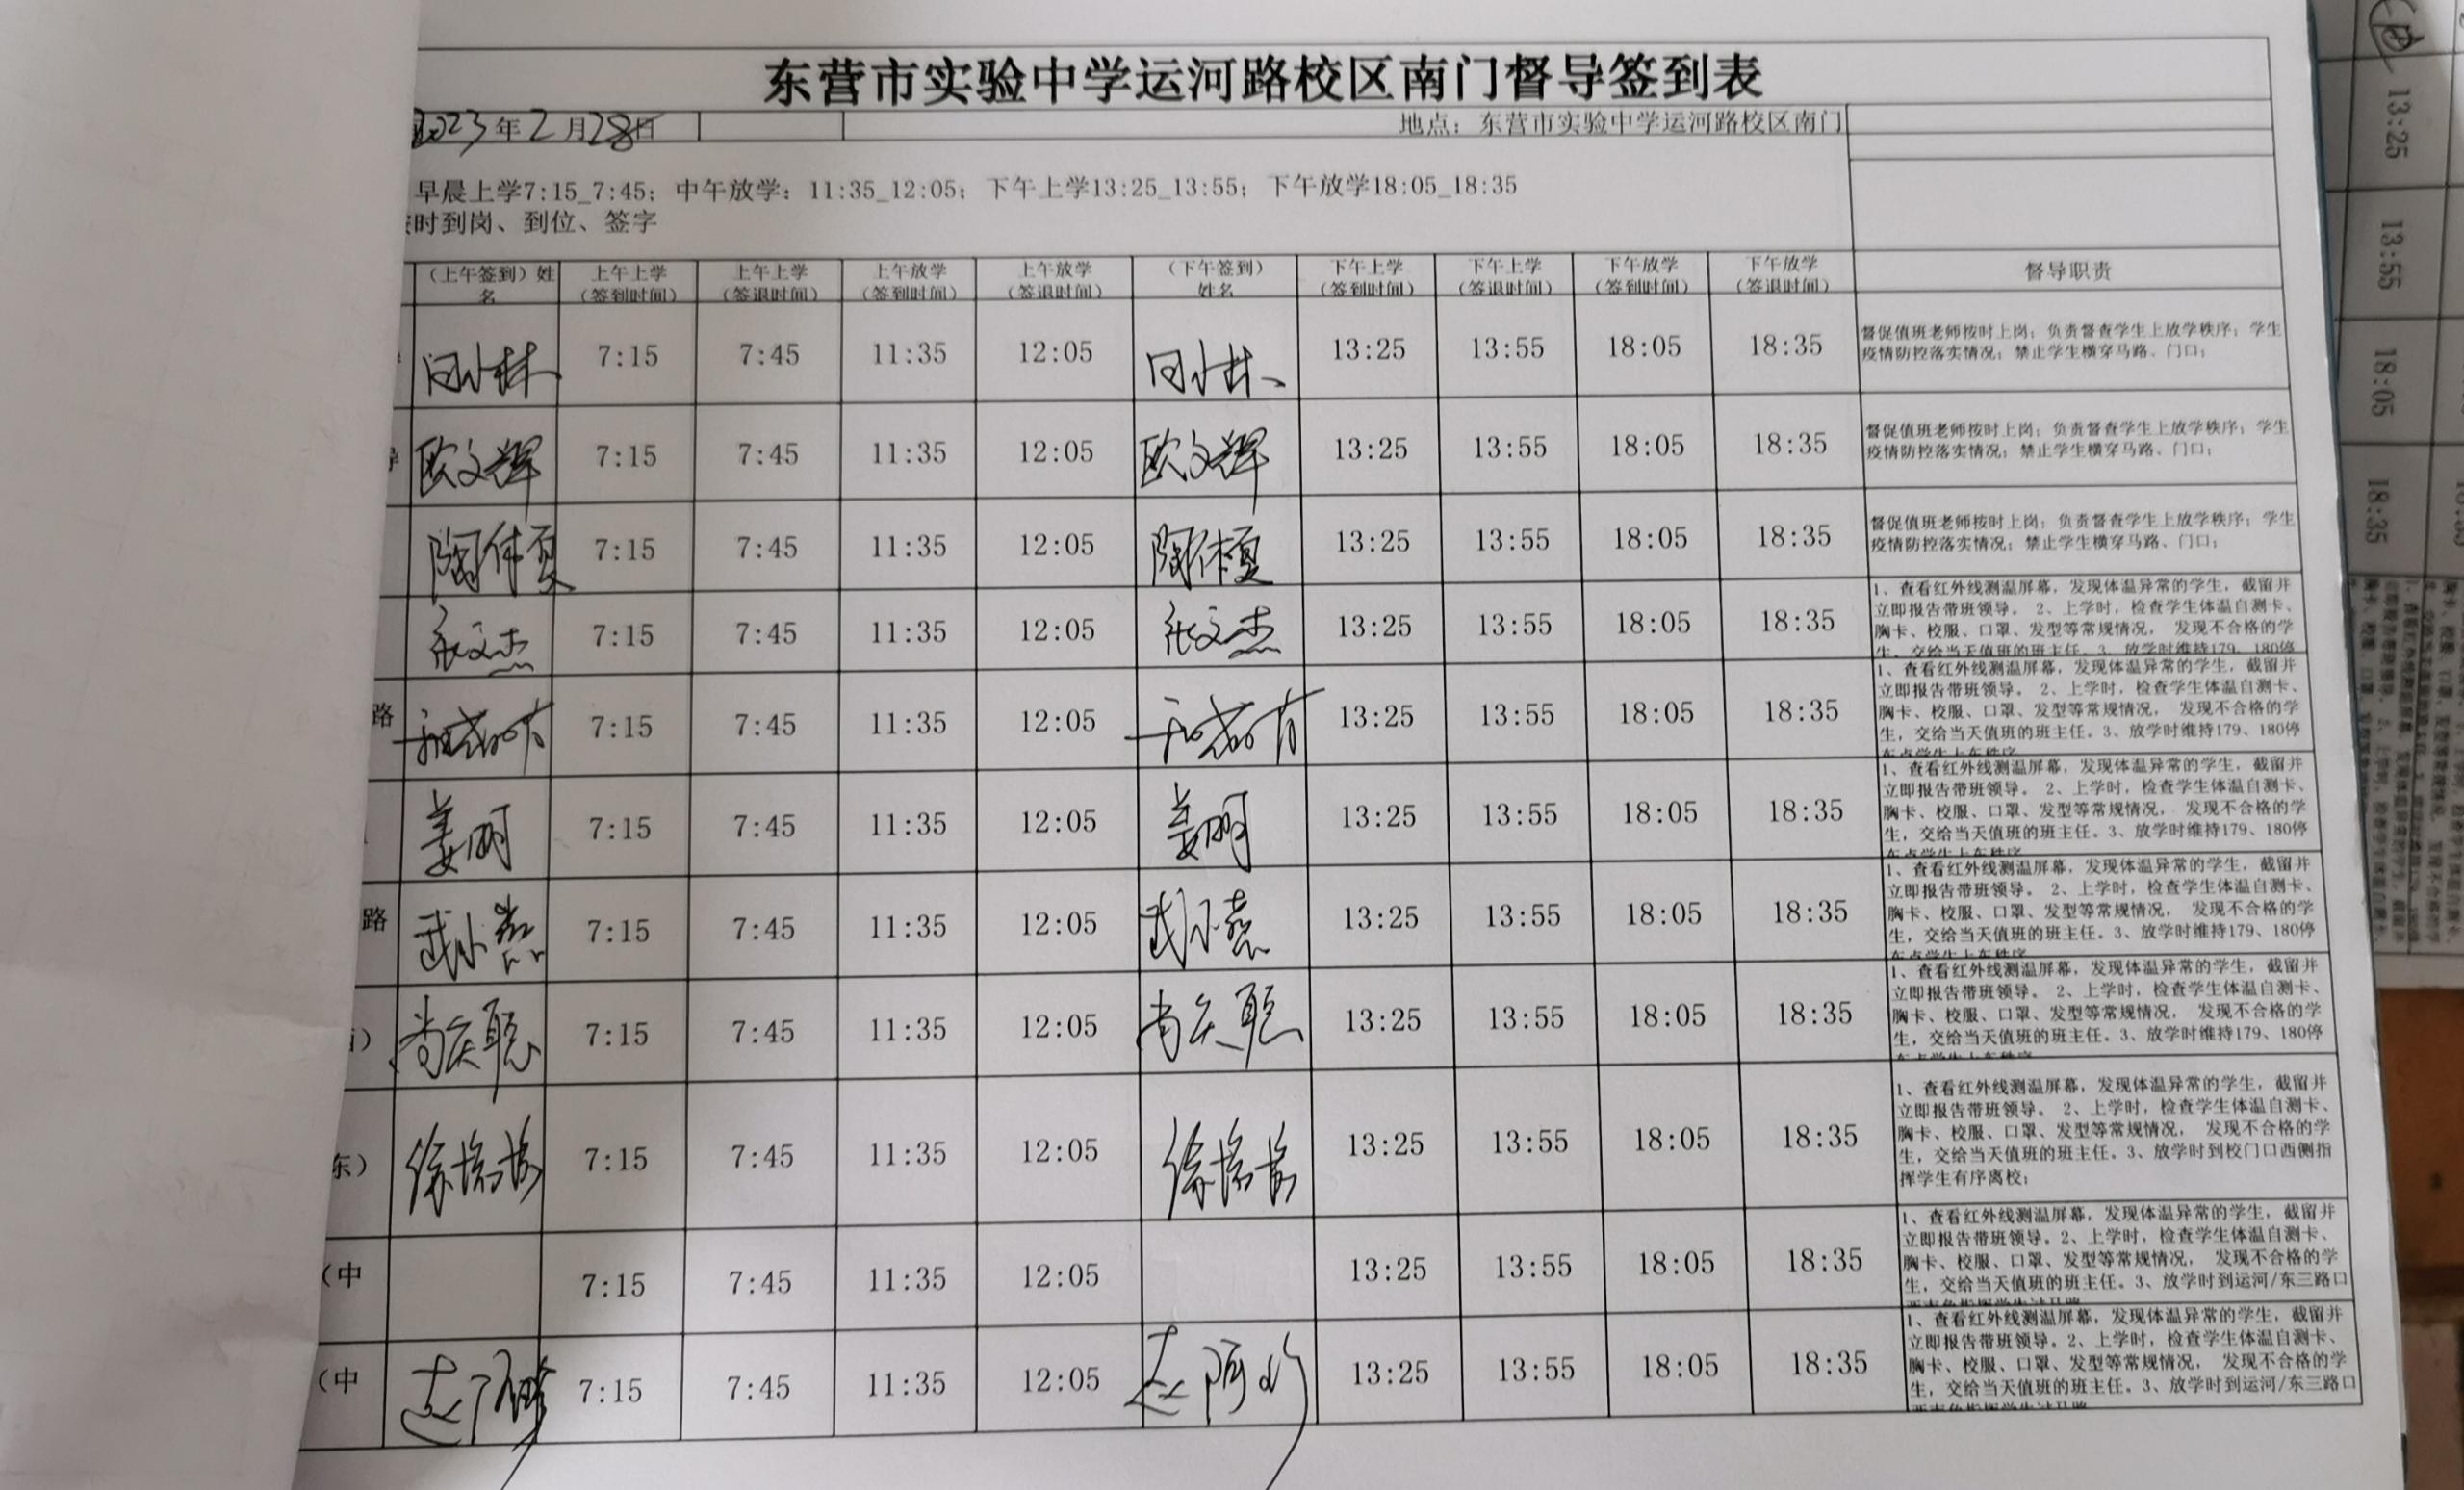 东营市实验中学运河路校区南门督导签到表
2023年2月28日 地点：东营市实验中学运河路校区南门
早晨上学7:15_7:45；中午放学：11:35_12:05；下午上学13:25_13:55；下午放学18:05_18:35
时到岗、到位、签字
（上午签到）姓名 上午上学（签到时间） 上午上学（签退时间） 上午放学（签到时间） 上午放学（签退时间） （下午签到）姓名 下午上学（签到时间） 下午上学（签退时间） 下午放学（签到时间） 下午放学（签退时间） 督导职责
7:15 7:45 11:35 12:05 13:25 13:55 18:05 18:35 督促值班老师按时上岗；负责督查学生上放学秩序；学生
疫情防控落实情况；禁止学生横穿马路、门口；
欧文辉 7:15 7:45 11:35 12:05 欧文辉 13:25 13:55 18:05 18:35 督促值班老师按时上岗；负责督查学生上放学秩序；学生
疫情防控落实情况；禁止学生横穿马路、门口；
陶伟夏 7:15 7:45 11:35 12:05 陶伟夏 13:25 13:55 18:05 18:35 督促值班老师按时上岗；负责督查学生上放学秩序；学生
疫情防控落实情况；禁止学生横穿马路、门口；
张文杰 7:15 7:45 11:35 12:05 张文杰 13:25 13:55 18:05 18:35 1、查看红外线测温屏幕，发现体温异常的学生，截留并
立即报告带班领导。 2、上学时，检查学生体温自测卡、
胸卡、校服、口罩、发型等常规情况， 发现不合格的学
生，交给当天值班的班主任。3、放学时维持179、180停
路 7:15 7:45 11:35 12:05 13:25 13:55 18:05 18:35 1、查看红外线测温屏幕，发现体温异常的学生，截留并
立即报告带班领导。 2、上学时，检查学生体温自测卡、
胸卡、校服、口罩、发型等常规情况， 发现不合格的学
生，交给当天值班的班主任。3、放学时维持179、180停
车点学生上车秩序
姜明 7:15 7:45 11:35 12:05 姜明 13:25 13:55 18:05 18:35 1、查看红外线测温屏幕，发现体温异常的学生，截留并
立即报告带班领导。 2、上学时，检查学生体温自测卡、
胸卡、校服、口罩、发型等常规情况， 发现不合格的学
生，交给当天值班的班主任。3、放学时维持179、180停
车点学生上车秩序
路 武小燕 7:15 7:45 11:35 12:05 武小燕 13:25 13:55 18:05 18:35 1、查看红外线测温屏幕，发现体温异常的学生，截留并
立即报告带班领导。 2、上学时，检查学生体温自测卡、
胸卡、校服、口罩、发型等常规情况， 发现不合格的学
生，交给当天值班的班主任。3、放学时维持179、180停
车点学生上车秩序
） 尚庆聪 7:15 7:45 11:35 12:05 尚庆聪 13:25 13:55 18:05 18:35 1、查看红外线测温屏幕，发现体温异常的学生，截留并
立即报告带班领导。 2、上学时，检查学生体温自测卡、
胸卡、校服、口罩、发型等常规情况， 发现不合格的学
生，交给当天值班的班主任。3、放学时维持179、180停
车点学生上车秩序
东） 7:15 7:45 11:35 12:05 13:25 13:55 18:05 18:35 1、查看红外线测温屏幕，发现体温异常的学生，截留并
立即报告带班领导。 2、上学时，检查学生体温自测卡、
胸卡、校服、口罩、发型等常规情况， 发现不合格的学
生，交给当天值班的班主任。3、放学时到校门口西侧指
挥学生有序离校；
（中 7:15 7:45 11:35 12:05 13:25 13:55 18:05 18:35 1、查看红外线测温屏幕，发现体温异常的学生，截留并
立即报告带班领导。2、上学时，检查学生体温自测卡、
胸卡、校服、口罩、发型等常规情况， 发现不合格的学
生，交给当天值班的班主任。3、放学时到运河/东三路口
（中 7:15 7:45 11:35 12:05 13:25 13:55 18:05 18:35 1、查看红外线测温屏幕，发现体温异常的学生，截留并
立即报告带班领导。2、上学时，检查学生体温自测卡、
胸卡、校服、口罩、发型等常规情况， 发现不合格的学
生，交给当天值班的班主任。3、放学时到运河/东三路口
13:25 13:55 18:05 18:35